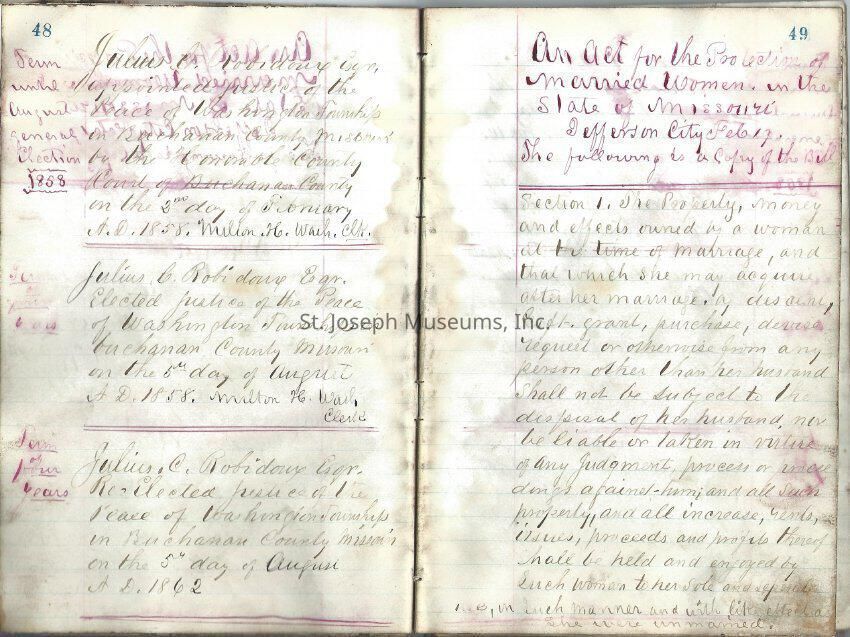 48
Term
until
August
general
Election
1858
Julius C. Robidoux Esqr.
appointed justice of the
Peace of Washington Township
in Buchanan County Missouri
by the Honorable County
Court of Buchanan County
on the 2nd day of February
A.D. 1858. Milton H. Wash, Clk.
Term
of
four
years
Julius, C. Robidoux Esqr.
Elected justice of the Peace
of Washington Township
Buchanan County Missouri
on the 5th day of August
A D. 1858. Milton H. Wash,
Clerk
Term
of
four
years
Julius, C. Robidoux Esqr.
Re-Elected justice of the
Peace of Washington Township
in Buchanan County Missouri
on the 5th day of August
A D. 1862
49
An Act for the Protection of
Married Women. in the
State of Missouri
Jefferson City Feb 17.
The following is a Copy of the Bill
Section 1. The Property, money
and effects owned by a woman
at the time of marriage, and
that which she may acquire
after her marriage, by descent,
grant, purchase, devise
request or otherwise from any
person other than her husband
shall not be subject to the
disposal of her husband, nor
be liable or taken in virtue
of any judgment, process or procee
dings against him; and all such
property, and all increase, rents,
issues, proceeds and profits thereof
shall be held and enjoyed by
such woman to her sole and seperate
use, in such manner and with like effect as
she were unmarried.
St. Joseph Museums, Inc.